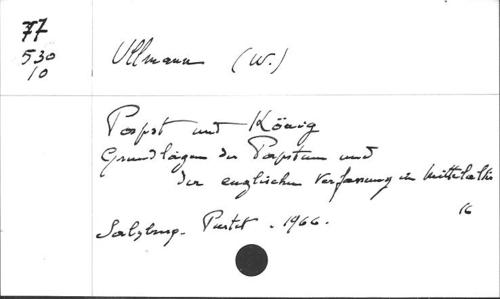 77
530
10
Ullmann (W.)
Papst und König
Grundlagen des Papsttums und
der englischen Verfassung im Mittelalter
16
Salzburg. Pustet. 1966.